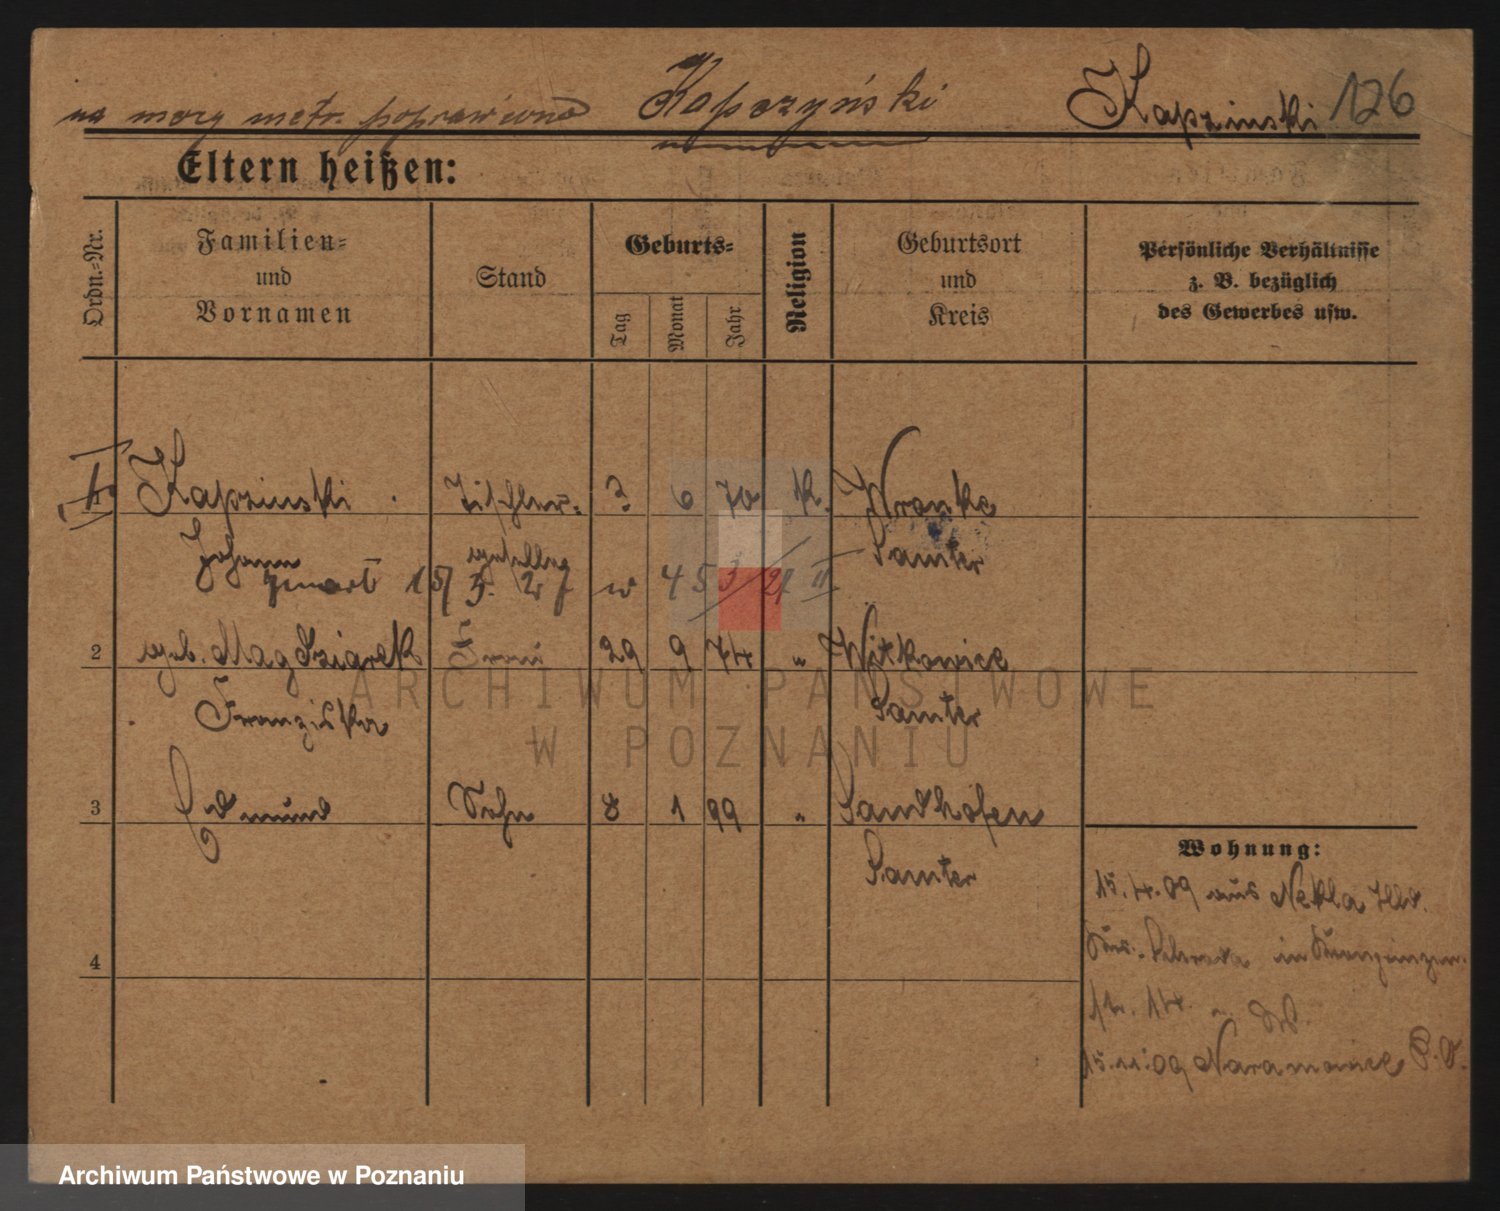 na mocy metr. poprawiono Kapczyński Kapzinski 126
Eltern heißen:
Ordn.-Nr.
Familien-
und
Vornamen
Stand
Geburts-
Tag
Monat
Jahr
Religion
Geburtsort
und
Kreis
Persönliche Verhältnisse
z. B. bezüglich
des Gewerbes usw.
Kapzinski Tischler- 2 6 70 K. Wronke
Johann geselle Samter
zmarł 15/5. 27 w 453/21 II
2 geb. Magdziarek Frau 29 9 74 " Witkowice
Franziska Samter
3 Edmund Sohn 8 1 99 " Sandhofen
Samter
4
Wohnung:
15.4.09 aus Nekla
in
str. 14.
15.11.09 Naramowice P. O.
ARCHIWUM PAŃSTWOWE
W POZNANIU
Archiwum Państwowe w Poznaniu